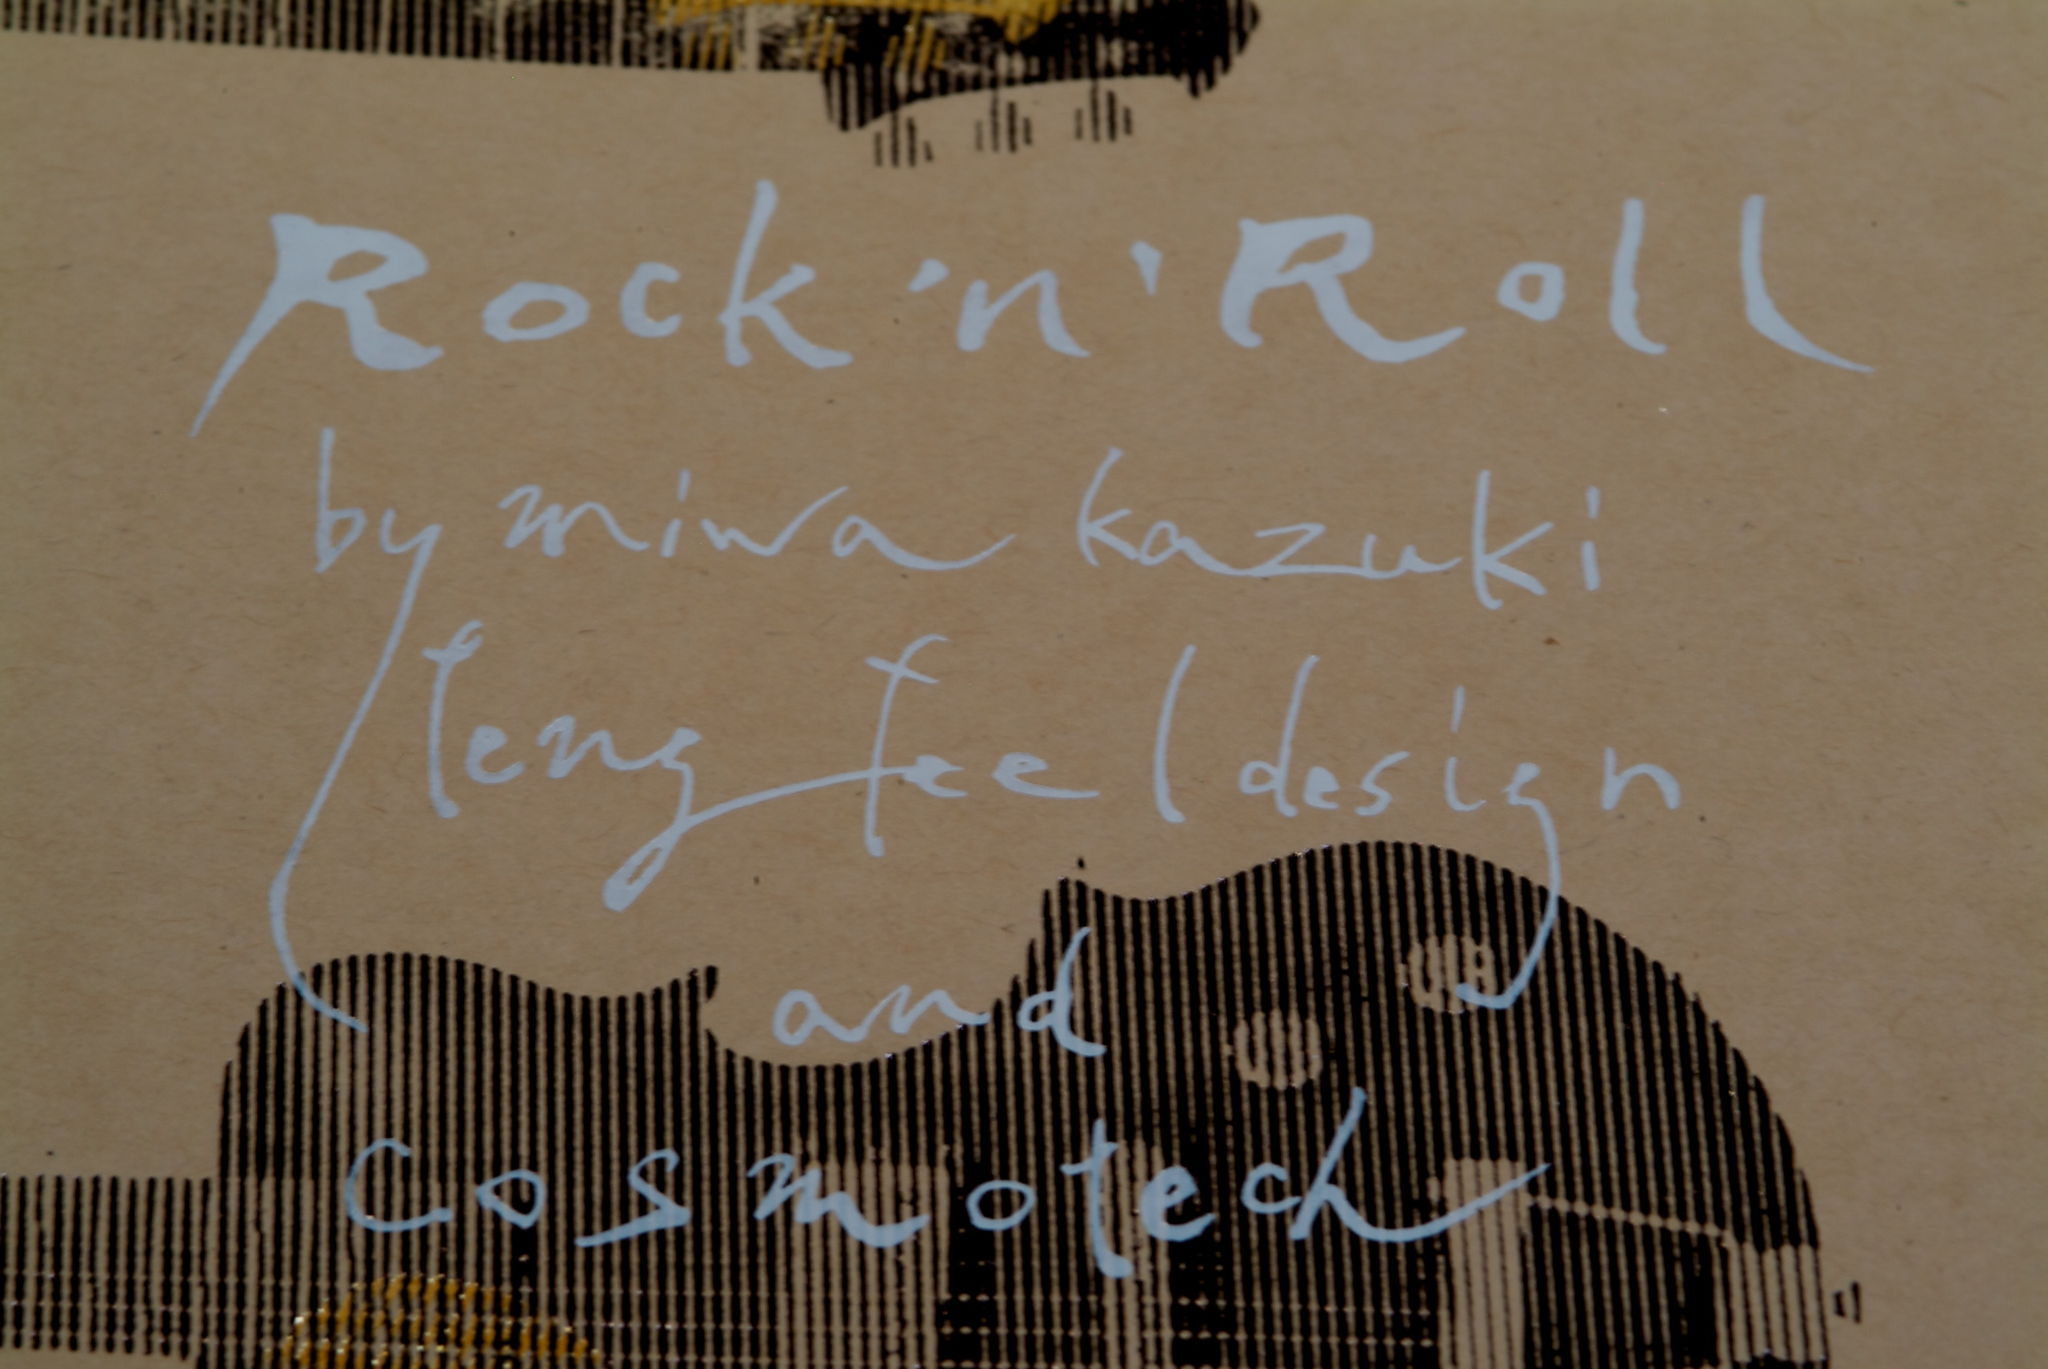 Rock 'n' Roll
by miwa kazuki
teng feel design
and
cosmotech